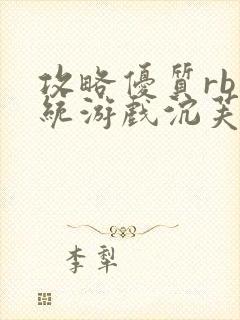 攻略優質rb
統游戲沉芙
李犁